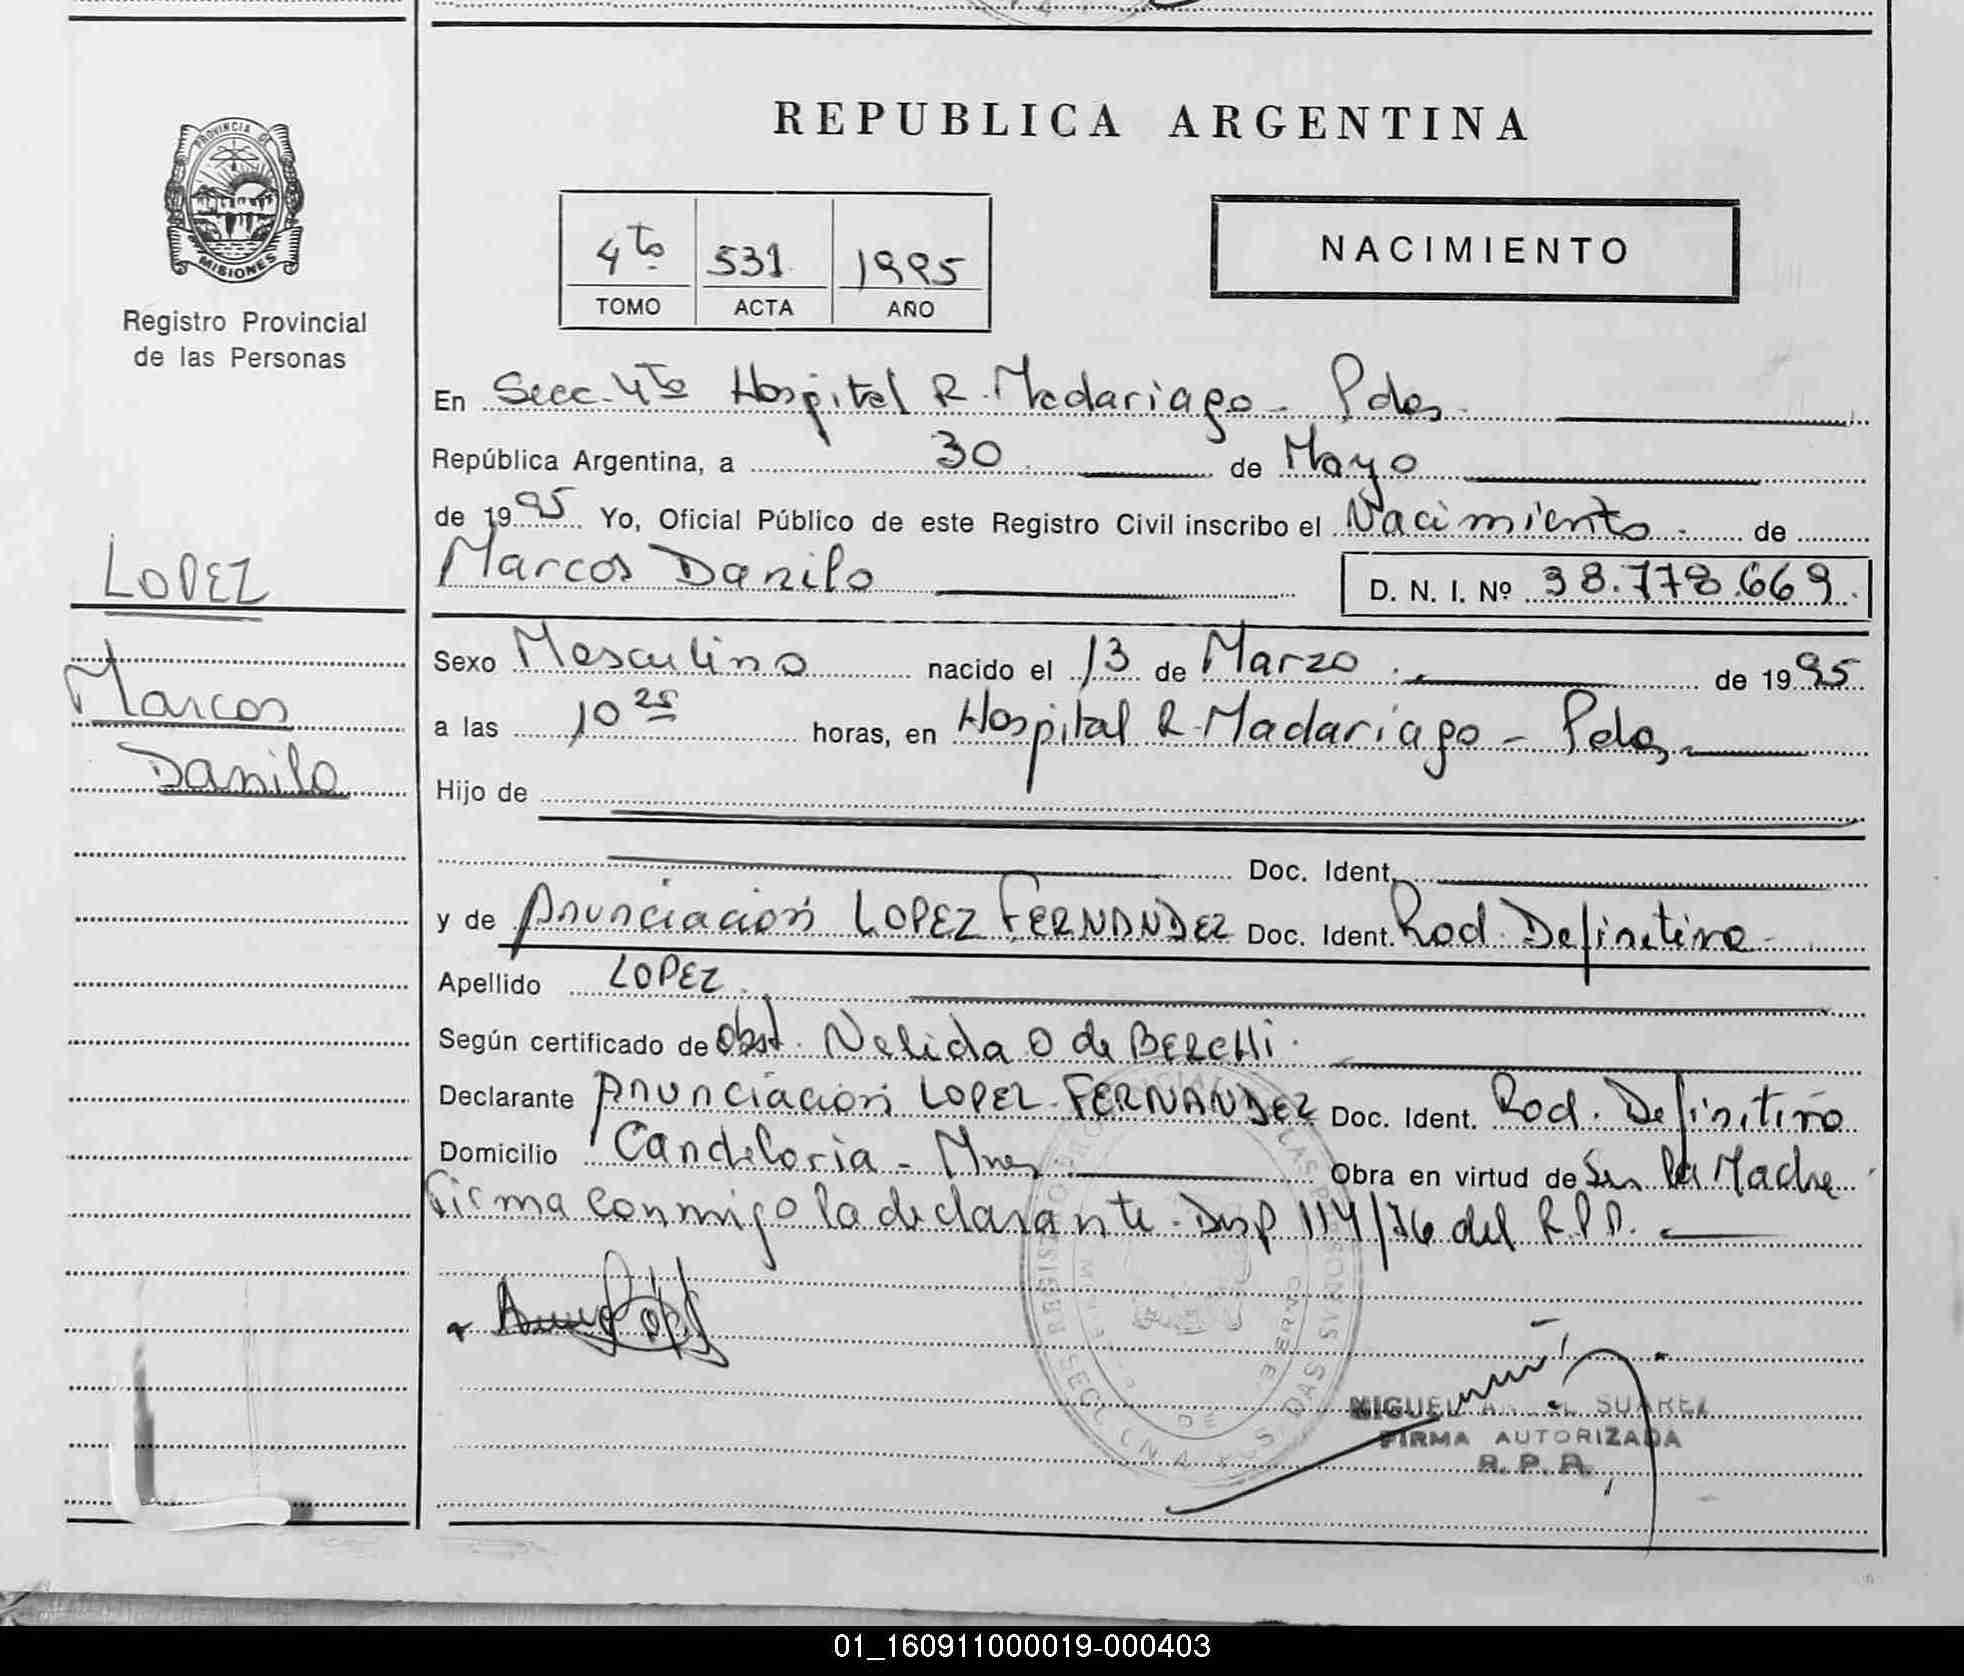 PROVINCIA DE
MISIONES
Registro Provincial
de las Personas
LOPEZ
Marcos
Danilo
REPUBLICA ARGENTINA
4to 531 1995
TOMO ACTA AÑO
NACIMIENTO
En Secc. 4to Hospital R. Madariaga - Pdas
República Argentina, a 30 de Mayo
de 1995 Yo, Oficial Público de este Registro Civil inscribo el Nacimiento de
Marcos Danilo D. N. I. Nº 38.778.669
Sexo Masculino nacido el 13 de Marzo de 1995
a las 10 25 horas, en Hospital R. Madariaga - Pdas
Hijo de
Doc. Ident.
y de Anunciación LOPEZ FERNANDEZ Doc. Ident. Rad. Definitiva
Apellido LOPEZ
Según certificado de Obst. Nelida O de BERCHI
Declarante Anunciación LOPEZ FERNANDEZ Doc. Ident. Rad. Definitiva
Domicilio Candelaria - Mnes Obra en virtud de Ser la Madre
Firma conmigo la declarante. Disp 114/76 del R.P.P.
MIGUEL ANGEL SUAREZ
FIRMA AUTORIZADA
R. P. P.
01_160911000019-000403